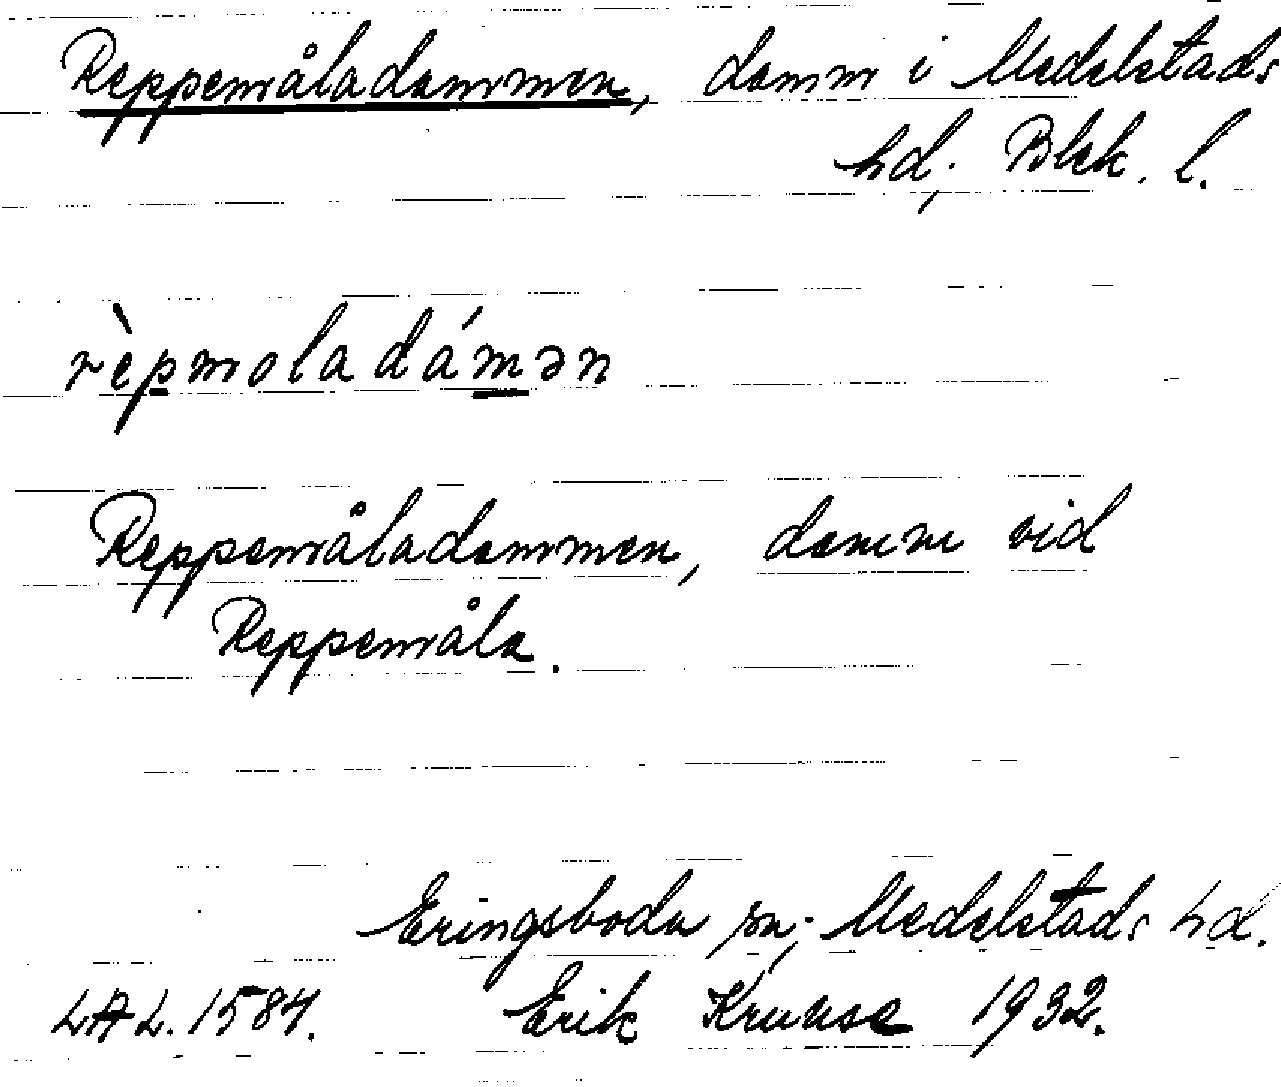 Reppemåladammen, damm i Medelstads
hd, Blek. l.
rèpmoladámən
Reppemåladammen, damm vid
Reppemåla.
Eringsboda sn, Medelstads hd.
LAL. 1584. Erik Kruuse 1932.